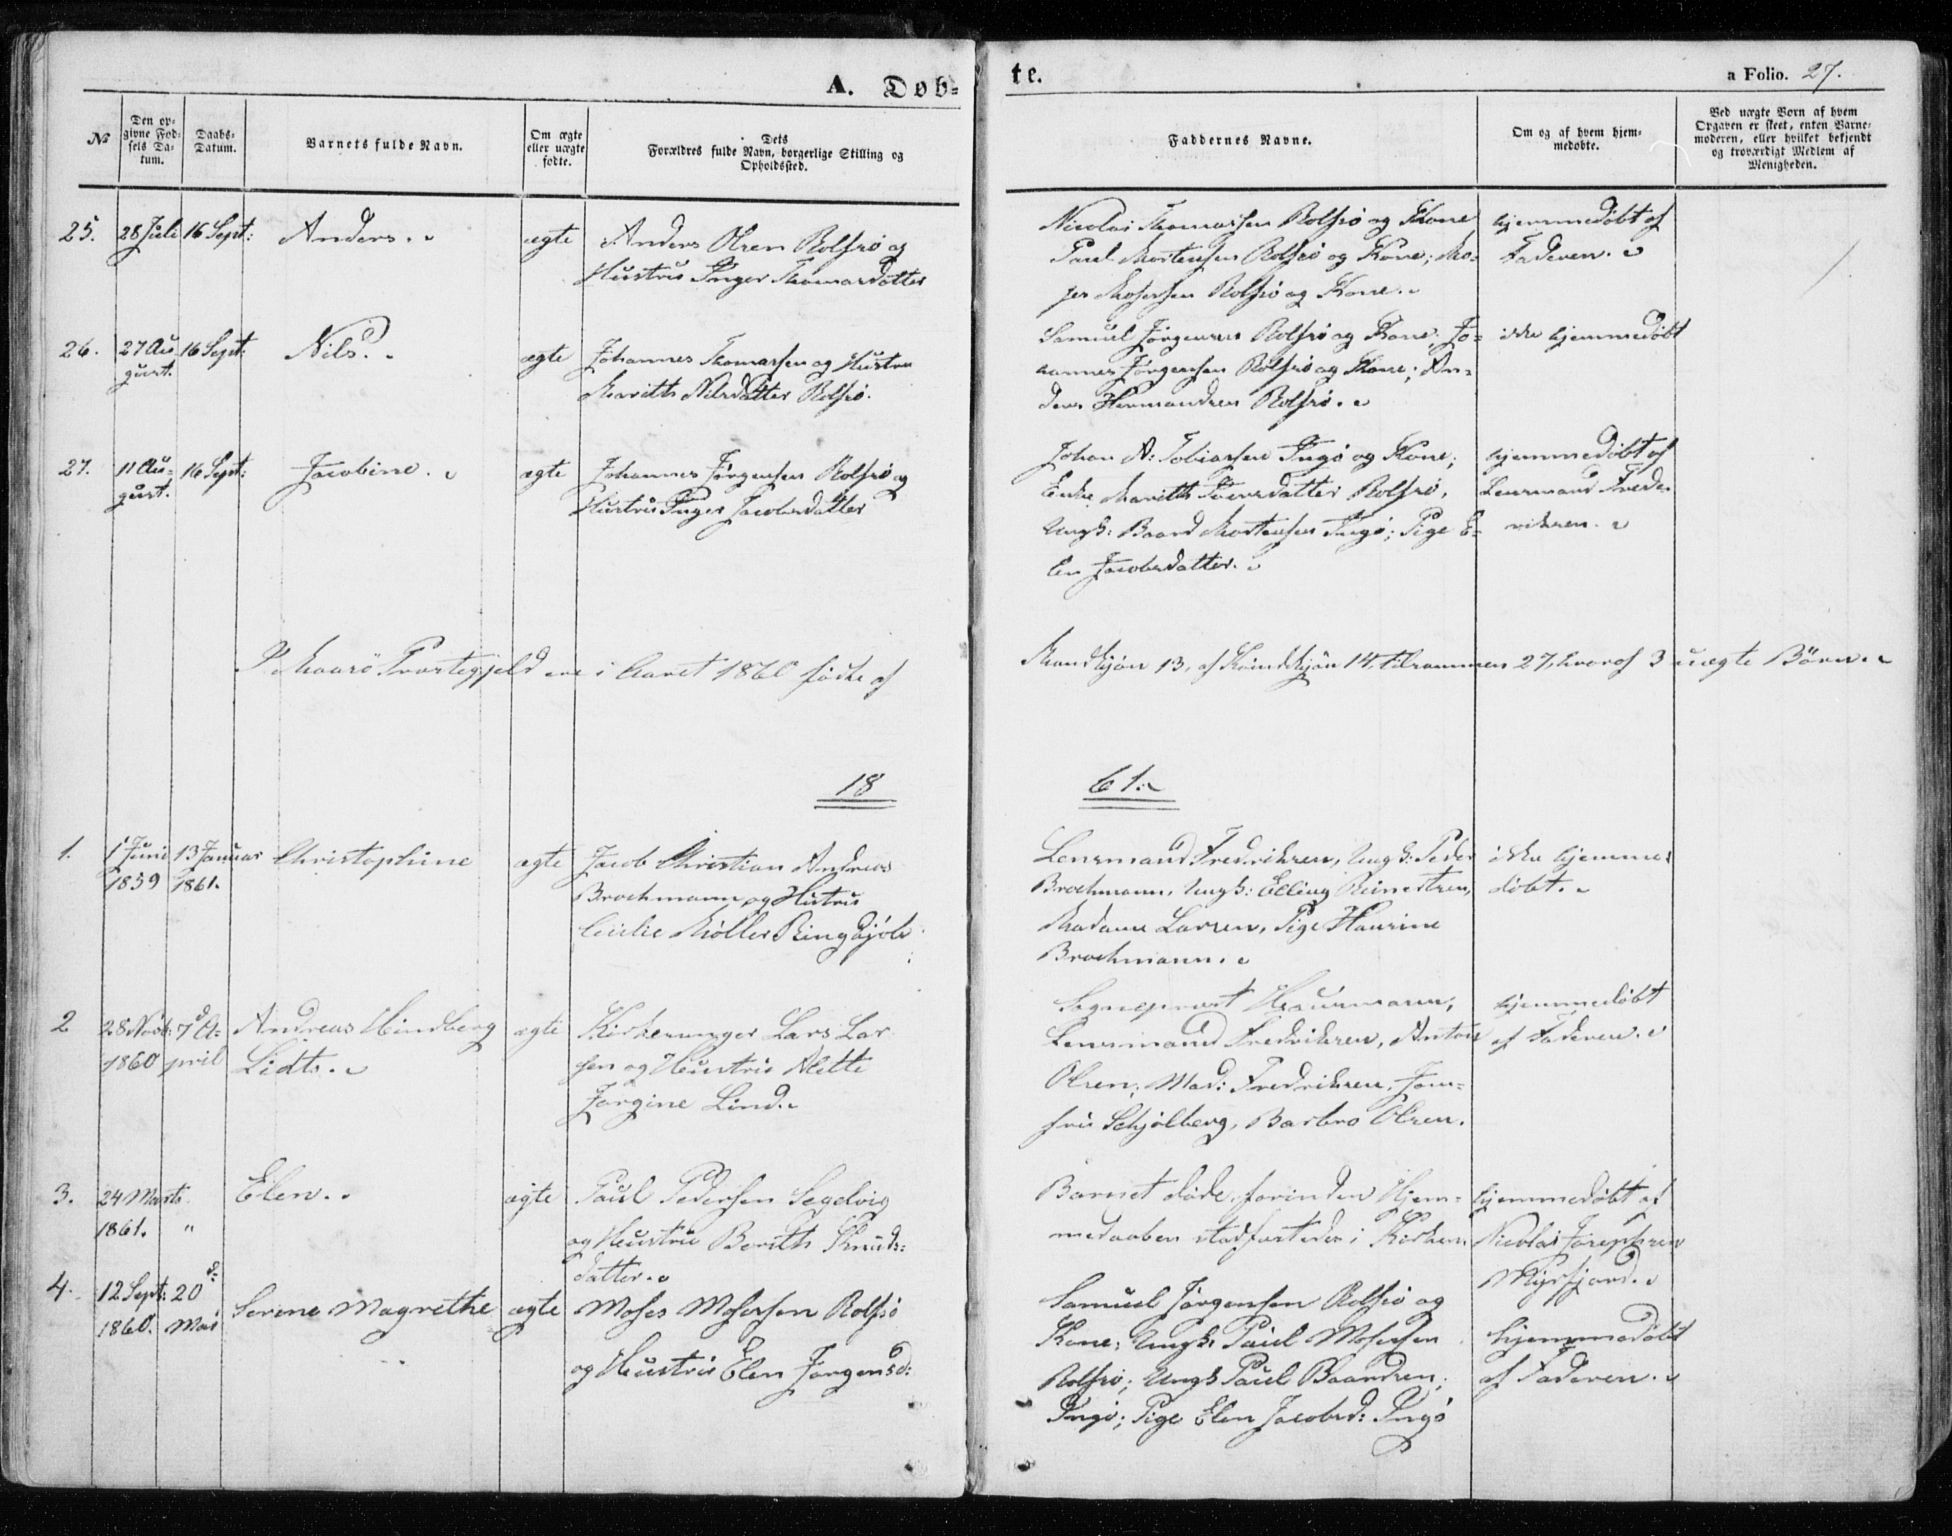 A. Døb-
te.
a Folio. 27.
No
Den op-
givne Fød-
sels Da-
tum.
Daabs-
Datum.
Barnets fulde Navn.
Om ægte
eller uægte
fødte.
Dets
Forældres fulde Navn, borgerlige Stilling og
Opholdssted.
Faddernes Navne.
Om og af hvem hjem-
medøbte.
Ved uægte Børn af hvem
Opgaven er skeet, enten Barne-
moderen, eller hvilket bekjendt
og troværdigt Medlem af
Menigheden.
25. 28 Juli 16 Sept: Anders. ægte Anders Olsen Rolfsø og
Hustru Inger Thomasdatter
Nicolai Thomassen Rolfsø og Kone
Paul Mortensen Rolfsø og Kone; Mo-
ses Mosessen Rolfsø og Kone.
hjemmedøbt af
Faderen.
26. 27 Au-
gust. 16 Sept: Nils. ægte Johannes Thomassen og Hustru
Marith Nilsdatter Rolfsø.
Samuel Jørgensen Rolfsø og Kone; Jo-
hannes Jørgensen Rolfsø og Kone; An-
ders Hermandsen Rolfsø.
ikke hjemmedøbt
27. 11 Au-
gust. 16 Sept: Jacobine. ægte Johannes Jørgensen Rolfsø og
Hustru Inger Jacobsdatter
Johan A: Tobiassen Ingø og Kone;
Enke Marith Iversdatter Rolfsø,
Ungk: Baard Mortensen Ingø; Pige E-
len Jacobsdatter.
hjemmedøbt af
Lensmand Frede-
riksen.
I Maasø Præstegjeld ere i Aaret 1860 fødte af
Mandkjøn 13, af Kvindekjøn 14, tilsammen 27, hvoraf 3 uægte Börn.
18
61.
1. 1 Juni
1859 13 Januar
1861. Christophine ægte Jacob Christian Andreas
Brochmann og Hustru
Cecilie Møller
Lensmand Fredriksen, Ungk: Peder
Brochmann, Ungk: Elling
Madame Larsen, Pige Haurine
Brochmann.
ikke hjemme-
døbt.
2 28 Novb:
1860 7d A-
pril Andreas Hindberg
Lidts. ægte Kirkesanger Lars Lar-
sen og Hustru Alette
Jørgine Lind.
Sogneprest
Lensmand Fredriksen, Anton
Olsen, Mad: Fredriksen, Jom-
fru Schjølberg, Barbro Olsen.
hjemmedøbt
af Faderen.
3. 24 Marts
1861. " Elen. ægte Paul Pedersen Segelvig
og Hustru Berith Knuds-
datter.
Barnet døde, forinden Hjem-
medaaben stadfæstedes i Kirken
hjemmedøbt af
Nicolai Josephsen
Ryfjord.
4. 12 Sept:
1860. 20d
Mai Serene Magrethe ægte Moses Mosessen Rolfsø
og Hustru Elen Jørgensd:
Samuel Jørgensen Rolfsø og
Kone; Ungk: Paul Mosessen
Rolfsø; Ungk Paul Baardsen,
Ingø; Pige Elen Jacobsd: Ingø
hjemmedøbt
af Faderen.